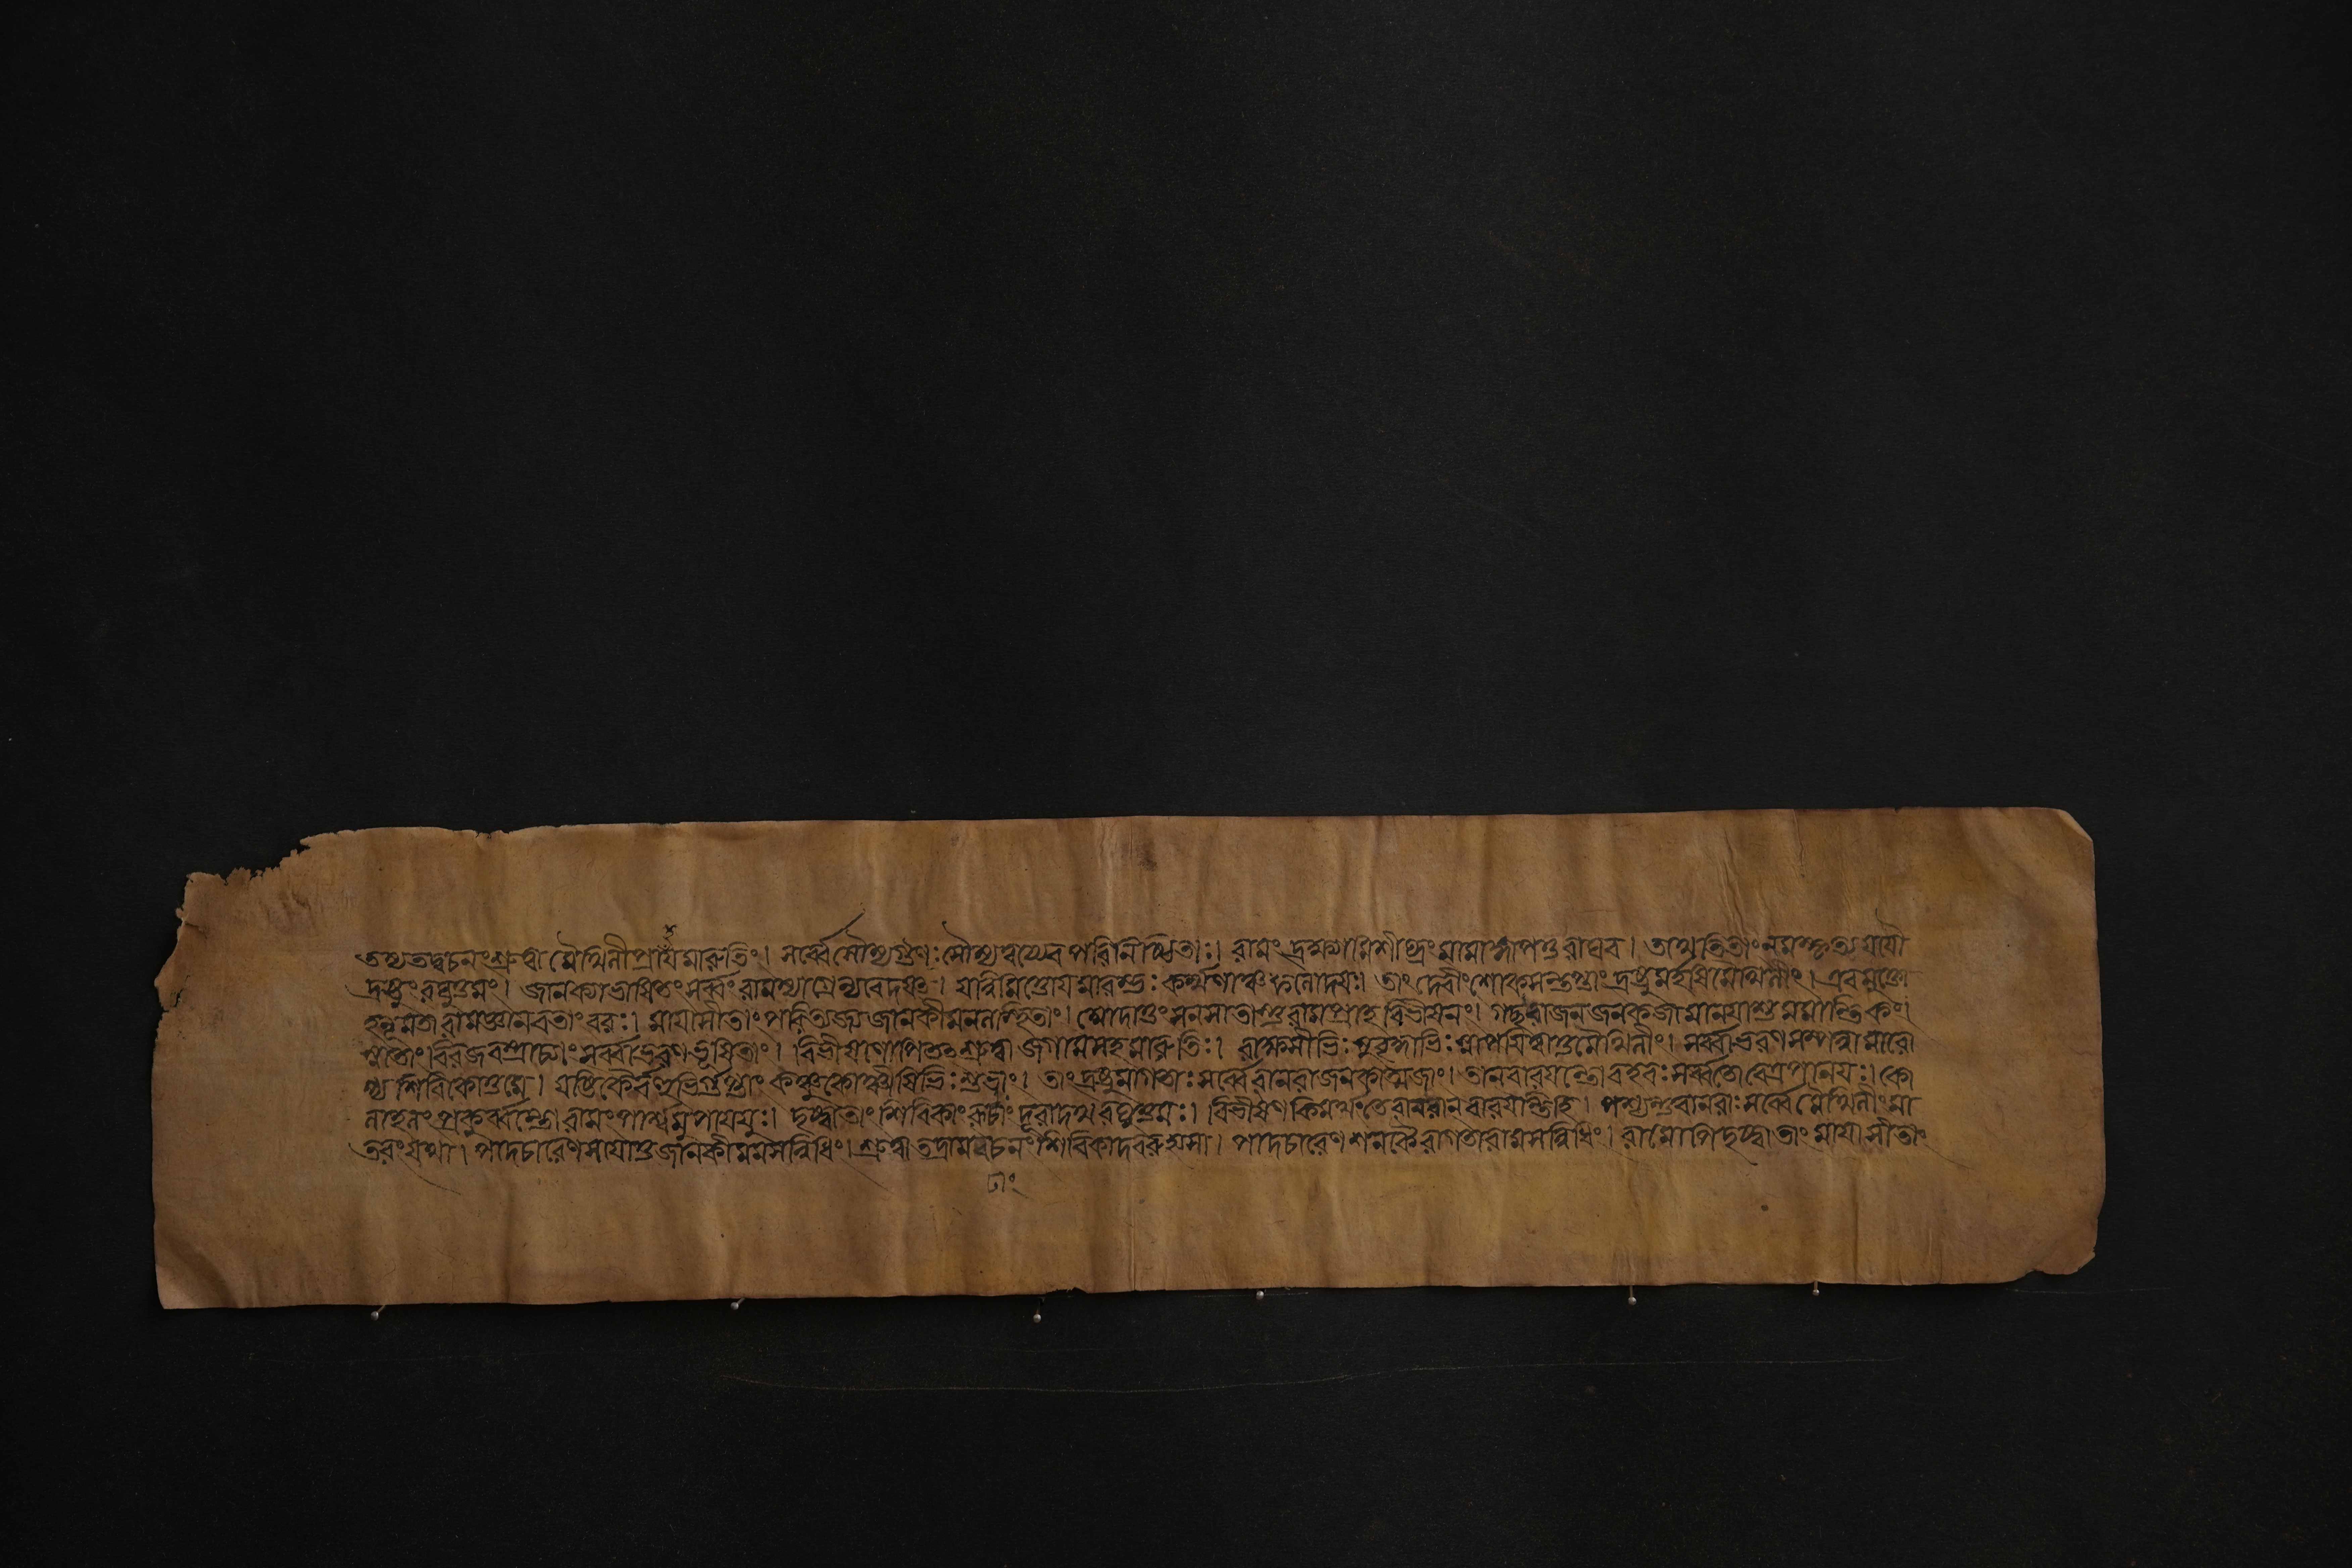 তস্যতদ্বচনংশ্রুত্বা মৈথিলীপ্রাহমারুতিং। সর্ব্বেসৌম্যগুণাঃসৌম্যত্বয্যেব পরিনিষ্ঠিতাঃ। রামং দ্রক্ষ্যামিশীঘ্রংমামাজ্ঞাপয়তুরাঘব। তাথেতিতাংনমস্কৃত্যযযৌ
দ্রষ্টুংরঘুত্তমং। জানক্যাভাষিতংসর্ব্বংরামস্যাগ্রেন্যবেদয়ৎ। যন্নিমিত্তোয়মারম্ভঃকর্ম্মণাঞ্চফলোদয়ঃ। তাংদেবীংশোকসন্তপ্তাংদ্রষ্টুমর্হসিমৈথিলীং। এবমুক্তো
হনূমতারামোজ্ঞানবতাংবরঃ। মায়াসীতাংপরিত্যজ্যজানকীমনলেস্থিতাং। আদাতুংমনসাধ্যাত্বারামঃপ্রাহবিভীষণং। গচ্ছরাজন্জনকজামানয়াশুমমান্তিকং।
স্নাতাংবিরজবস্ত্রাঢ্যাংসর্ব্বাভরণভূষিতাং। বিভীষণোপিতৎশ্রুত্বাজগামসহমারুতিঃ। রাক্ষসীভিঃসুবৃদ্ধাভিঃস্নাপয়িত্বাতুমৈথিলীং। সর্ব্বাভরণসম্পন্নামারো
প্য শিবিকোত্তমে। যষ্টিকৈর্বহুভির্গুপ্তাং কঞ্চুকোষ্ণীষিভিঃশুভাং। তাংদ্রষ্টুমাগতাঃসর্ব্বেবানরাজনকাত্মজাং। তানবারয়ন্তোবহবঃসর্ব্বতোবেত্রপানয়ঃ। কো
লাহলংপ্রকুর্ব্বন্তোরামংপার্শ্বমুপাযয়ুঃ। দৃষ্ট্বাতাংশিবিকাংরূঢাংদূরাদথরঘুত্তমঃ। বিভীষণকিমর্থংতেবানরান্বারয়ন্তিহি। পশ্যন্তুবানরাঃসর্ব্বেমৈথিলীংমা
তরংযথা। পাদচারেণসায়াতুজানকীমমসন্নিধিং। শ্রুত্বাতদ্রামবচনংশিবিকাদবরুহ্যসা। পাদচারেণশনকৈরাগতারামসন্নিধিং। রামোপিদৃষ্ট্বাতাংমায়াসীতাং